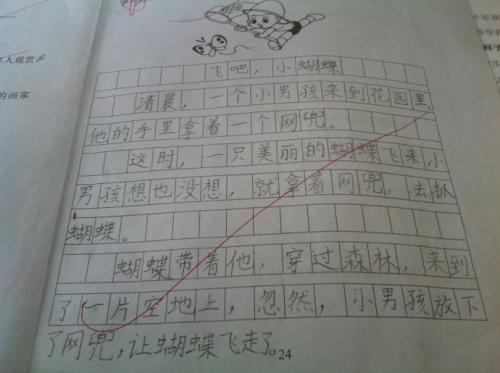 人观赏
的画家
飞吧，小蝴蝶
清晨，一个小男孩来到花园里，
他的手里拿着一个网兜。
这时，一只美丽的蝴蝶飞来，小
男孩想也没想，就拿着网兜，去抓
蝴蝶。
蝴蝶带着他，穿过森林，来到
了一片空地上，忽然，小男孩放下
了网兜，让蝴蝶飞走了。
24